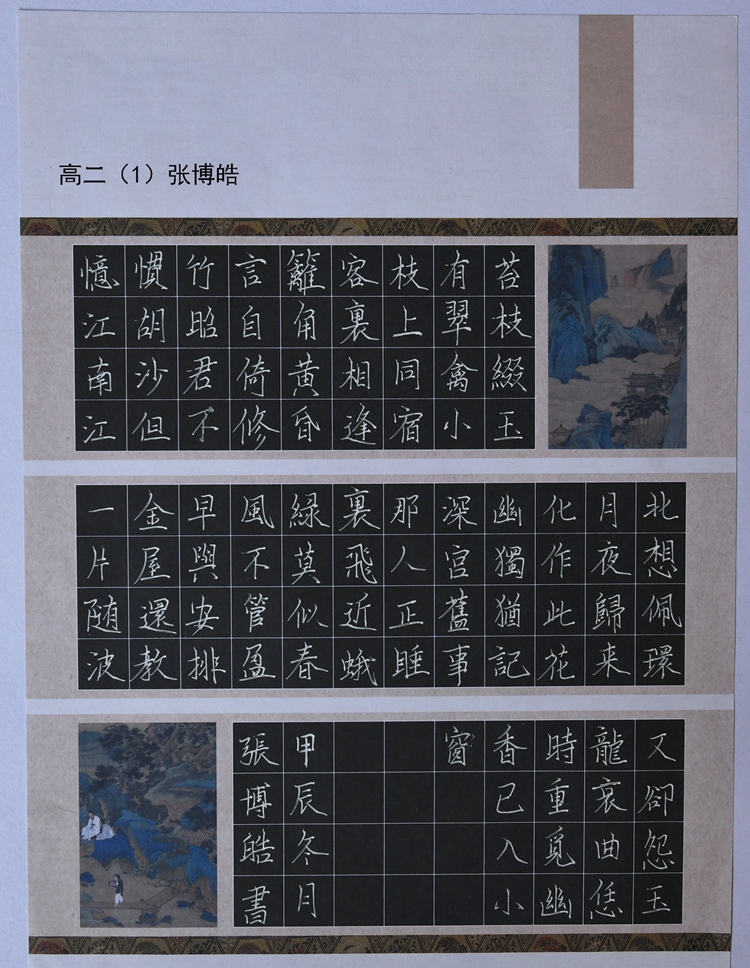 高二（1）张博皓
苔枝綴玉
有翠禽小
枝上同宿
客裏相逢
籬角黄昏
言自倚修
竹昭君不
慣胡沙但
憶江南江
北想佩環
月夜歸来
化作此花
幽獨猶記
深宮舊事
那人正睡
裏飛近蛾
緑莫似春
風不管盈
早與安排
金屋還教
一片随波
又卻怨玉
龍哀曲恁
時重覓幽
香已入小
窗
甲辰冬月
張博皓書